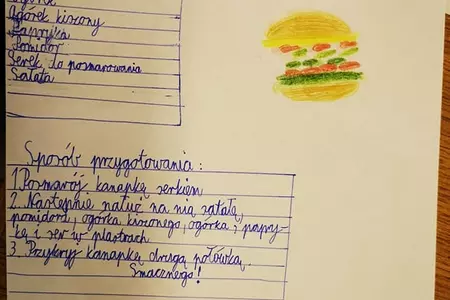 Ogórek kiszony
Papryka
Pomidor
Serek do posmarowania
Sałata
Sposób przygotowania:
1. Posmaruj kanapkę serkiem
2. Następnie nałuż na nią sałatę,
pomidora, ogórka kiszonego, ogórka, papry-
kę i ser w plastrach
3. Przykryj kanapkę drugą połówką.
Smacznego!